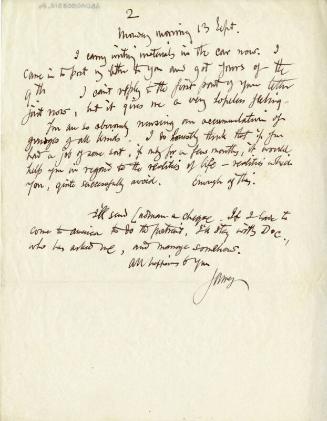 2
Monday morning 13 Sept.
I carry writing materials in the car now. I
came in to post my letter to you and got yours of the
9th I can't reply to the first part of your letter
just now, but it gives me a very hopeless feeling.
You are so obviously nursing an accumulation of
grudges of all kinds. I do honestly think that if you
had a job of some sort, if only for a few months, it would
help you in regard to the realities of life — realities which
you, quite successfully avoid. Enough of this.
I'll send Cadman a cheque. If I have to
come to America to do the portrait, I'll stay with Doc.,
who has asked me, and manage somehow.
All happiness to you